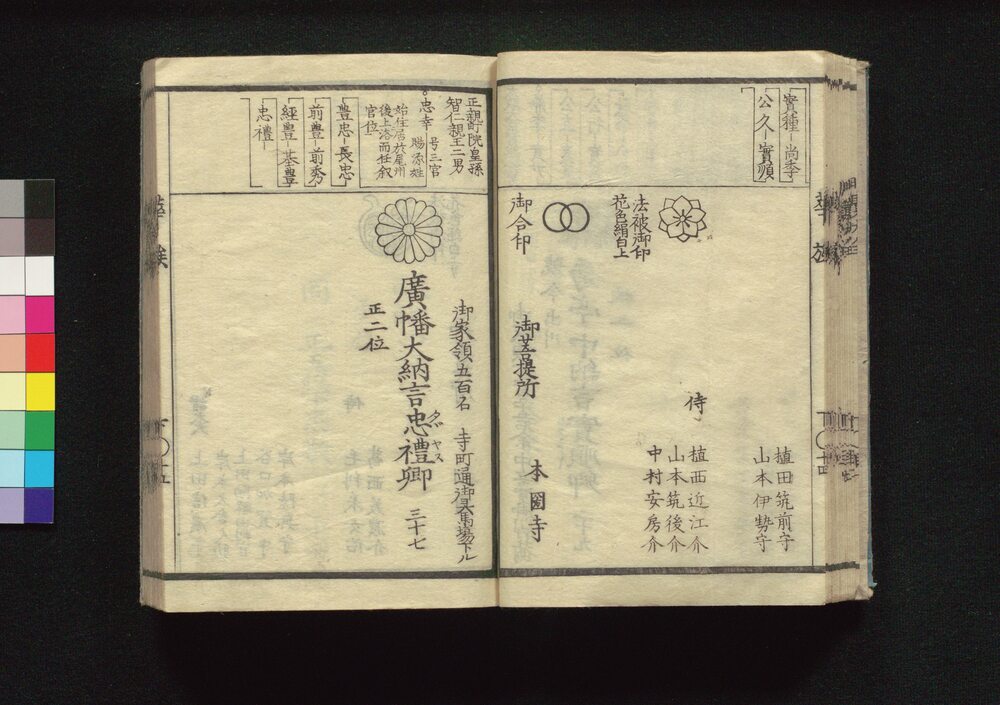 實種 尚季
公久 實順
植田筑前守
山本伊勢守
侍
植西近江介
山本筑後介
中村安房介
法被御印
花色絹白上
御合印
御菩提所
本圀寺
正親町院皇孫
智仁親王二男
忠幸 号三宮
賜源姓
始住居於尾州
後上洛而任叙
官位
豊忠 長忠
前豊 前秀
經豊 基豊
忠禮
御家領五百石 寺町通御車馬場下ル
廣幡大納言忠禮卿 三十七
タヾヤス
正二位